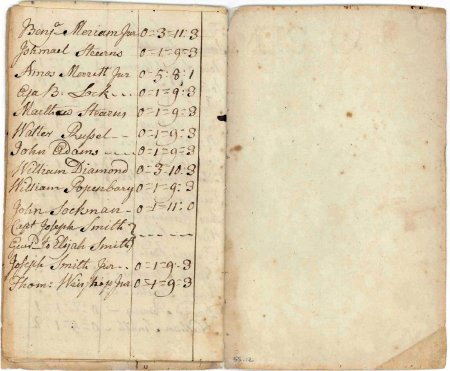 Benjª Meriam Jur 0=3=11:3
Ishmael Stearns 0=1=9=3
Amos Merritt Jur 0=5:8:1
Eza B. Lock 0=1=9:3
Matthew Stearns 0=1=9=3
Walter Russel 0=1=9=3
John Adams 0=1=9=3
William Diamond 0=3=10:3
William 0=1=9:3
John Lockman 0=1=11:0
Capt Joseph Smith
Gurdn to Elijah Smith
Joseph Smith Jur 0=1=9=3
Thoms Winship Jur 0=1=9=3